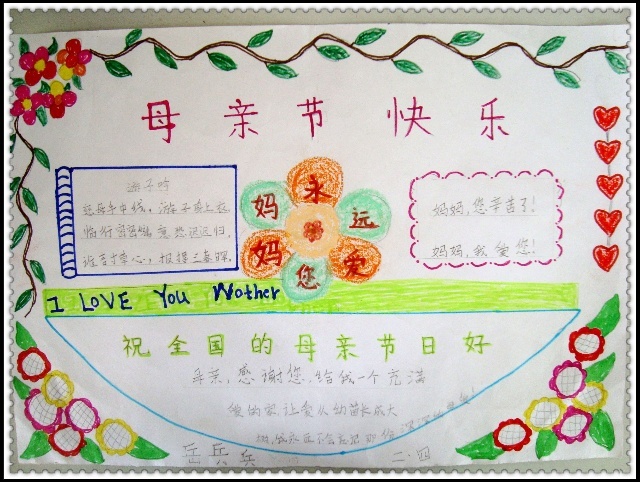 母亲节快乐
游子吟
慈母手中线,游子身上衣,
临行密密缝,意恐迟迟归,
谁言寸草心,报得三春晖。
永
妈 远
妈 爱
您
妈妈,您辛苦了!
妈妈,我爱您!
I LOVE You Wother
祝全国的母亲节日好
母亲,感谢您,给我一个充满
爱的家让爱从幼苗长成大
岳兵兵 二·四